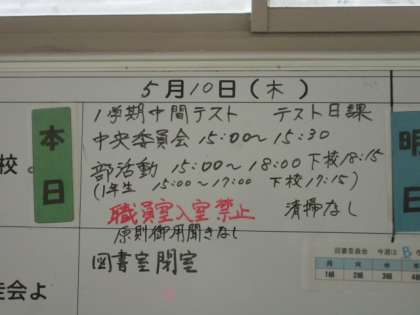 5月10日(木)
本日
明日
1学期中間テスト テスト日課
中央委員会 15:00～15:30
部活動 15:00～18:00 下校18:15
(1年生 15:00～17:00 下校17:15)
職員室入室禁止 清掃なし
原則御用聞きなし
図書室閉室
校
徒会よ
図書委員会 今週は B
月 火 水 木
1組 2組 3組 4組